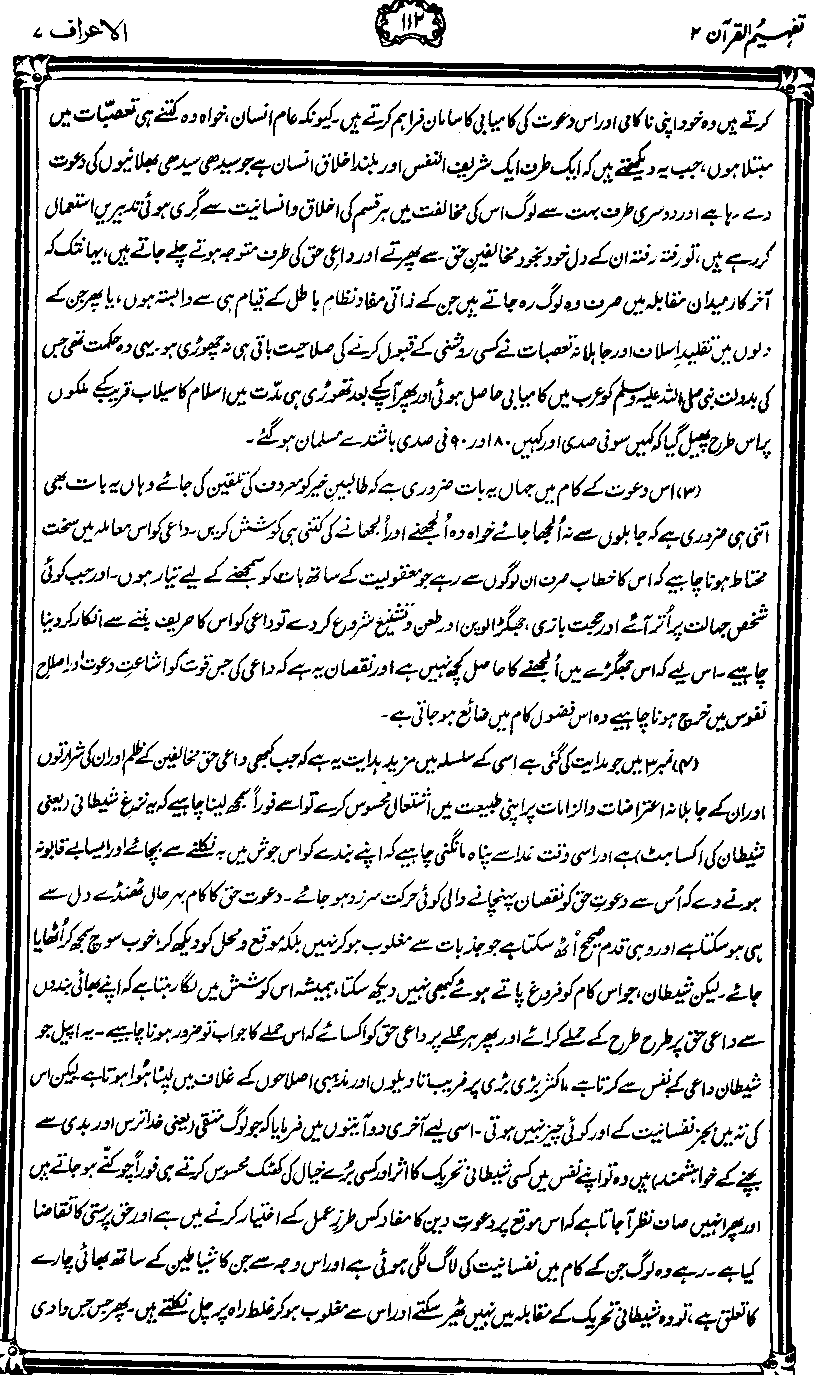 تفہیم القرآن ۲
۱۱۲
الاعراف ۷
کرتے ہیں وہ خود اپنی ناکامی اور اس دعوت کی کامیابی کا سامان فراہم کرتے ہیں۔ کیونکہ عام انسان، خواہ وہ کتنے ہی تعصبات میں
مبتلا ہوں، جب یہ دیکھتے ہیں کہ ایک طرف ایک شریف النفس اور بلند اخلاق انسان ہے جو سیدھی سیدھی بھلائیوں کی دعوت
دے رہا ہے اور دوسری طرف بہت سے لوگ اس کی مخالفت میں ہر قسم کی اخلاق و انسانیت سے گری ہوئی تدبیریں استعمال
کر رہے ہیں، تو رفتہ رفتہ ان کے دل خود بخود مخالفین حق سے پھرتے اور داعی حق کی طرف متوجہ ہوتے چلے جاتے ہیں، یہانتک کہ
آخر کار میدان مقابلہ میں صرف وہ لوگ رہ جاتے ہیں جن کے ذاتی مفاد نظامِ باطل کے قیام ہی سے وابستہ ہوں، یا پھر جن کے
دلوں میں تقلیدِ اسلاف اور جاہلانہ تعصبات نے کسی روشنی کے قبول کرنے کی صلاحیت باقی ہی نہ چھوڑی ہو۔ یہی وہ حکمت تھی جس
کی بدولت نبی صلی اللہ علیہ وسلم کو عرب میں کامیابی حاصل ہوئی اور پھر آپکے بعد تھوڑی ہی مدّت میں اسلام کا سیلاب قریبکے ملکوں
پر اس طرح پھیل گیا کہ کہیں سو فی صدی اور کہیں ۸۰ اور ۹۰ فی صدی باشندے مسلمان ہو گئے۔
(۳) اس دعوت کے کام میں جہاں یہ بات ضروری ہے کہ طالبینِ خیر کو معروف کی تلقین کی جائے وہاں یہ بات بھی
اتنی ہی ضروری ہے کہ جاہلوں سے نہ اُلجھا جائے خواہ وہ اُلجھنے اور اُلجھانے کی کتنی ہی کوشش کریں۔ داعی کو اس معاملہ میں سخت
محتاط ہونا چاہیے کہ اس کا خطاب صرف ان لوگوں سے رہے جو معقولیت کے ساتھ بات کو سمجھنے کے لیے تیار ہوں۔ اور جب کوئی
شخص جہالت پر اُتر آئے اور حجت بازی، جھگڑالوپن اور طعن و تشنیع شروع کر دے تو داعی کو اس کا حریف بننے سے انکار کر دینا
چاہیے۔ اس لیے کہ اس جھگڑے میں اُلجھنے کا حاصل کچھ نہیں ہے اور نقصان یہ ہے کہ داعی کی جس قوت کو اشاعتِ دعوت اور اصلاح
نفوس میں خرچ ہونا چاہیے وہ اس فضول کام میں ضائع ہو جاتی ہے۔
(۴) نمبر ۳ میں جو ہدایت کی گئی ہے اسی کے سلسلہ میں مزید ہدایت یہ ہے کہ جب کبھی داعی حق مخالفین کے ظلم اور ان کی شرارتوں
اور ان کے جاہلانہ اعتراضات و الزامات پر اپنی طبیعت میں اشتعال محسوس کرے تو اسے فوراً سمجھ لینا چاہیے کہ یہ نزغِ شیطانی (یعنی
شیطان کی اکساہٹ) ہے اور اسی وقت خدا سے پناہ مانگنی چاہیے کہ اپنے بندے کو اس جوش میں بہ نکلنے سے بچائے اور ایسا بے قابو نہ
ہونے دے کہ اُس سے دعوتِ حق کو نقصان پہنچانے والی کوئی حرکت سرزد ہو جائے۔ دعوتِ حق کا کام بہرحال ٹھنڈے دل سے
ہی ہو سکتا ہے اور وہی قدم صحیح اُٹھ سکتا ہے جو جذبات سے مغلوب ہو کر نہیں بلکہ موقع و محل کو دیکھ کر، خوب سوچ سمجھ کر اُٹھایا
جائے۔ لیکن شیطان، جو اس کام کو فروغ پاتے ہوئے کبھی نہیں دیکھ سکتا، ہمیشہ اس کوشش میں لگا رہتا ہے کہ اپنے بھائی بندوں
سے داعی حق پر طرح طرح کے حملے کرائے اور پھر ہر حملے پر داعی حق کو اکسائے کہ اس حملے کا جواب تو ضرور ہونا چاہیے۔ یہ اپیل جو
شیطان داعی کے نفس سے کرتا ہے، اکثر بڑی بڑی پرفریب تاویلوں اور مذہبی اصلاحوں کے غلاف میں لپٹا ہُوا ہوتا ہے لیکن اس
کی تہ میں بجز نفسانیت کے اور کوئی چیز نہیں ہوتی۔ اسی لیے آخری دو آیتوں میں فرمایا کہ جو لوگ متقی (یعنی خدا ترس اور بدی سے
بچنے کے خواہشمند) ہیں وہ تو اپنے نفس میں کسی شیطانی تحریک کا اثر اور کسی بُرے خیال کی کھٹک محسوس کرتے ہی فوراً چوکنّے ہو جاتے ہیں
اور پھر انہیں صاف نظر آجاتا ہے کہ اس موقع پر دعوتِ دین کا مفاد کس طرزِ عمل کے اختیار کرنے میں ہے اور حق پرستی کا تقاضا
کیا ہے۔ رہے وہ لوگ جن کے کام میں نفسانیت کی لاگ لگی ہوئی ہے اور اس وجہ سے جن کا شیاطین کے ساتھ بھائی چارے
کا تعلق ہے، تو وہ شیطانی تحریک کے مقابلہ میں نہیں ٹھیر سکتے اور اس سے مغلوب ہو کر غلط راہ پر چل نکلتے ہیں۔ پھر جس جس وادی